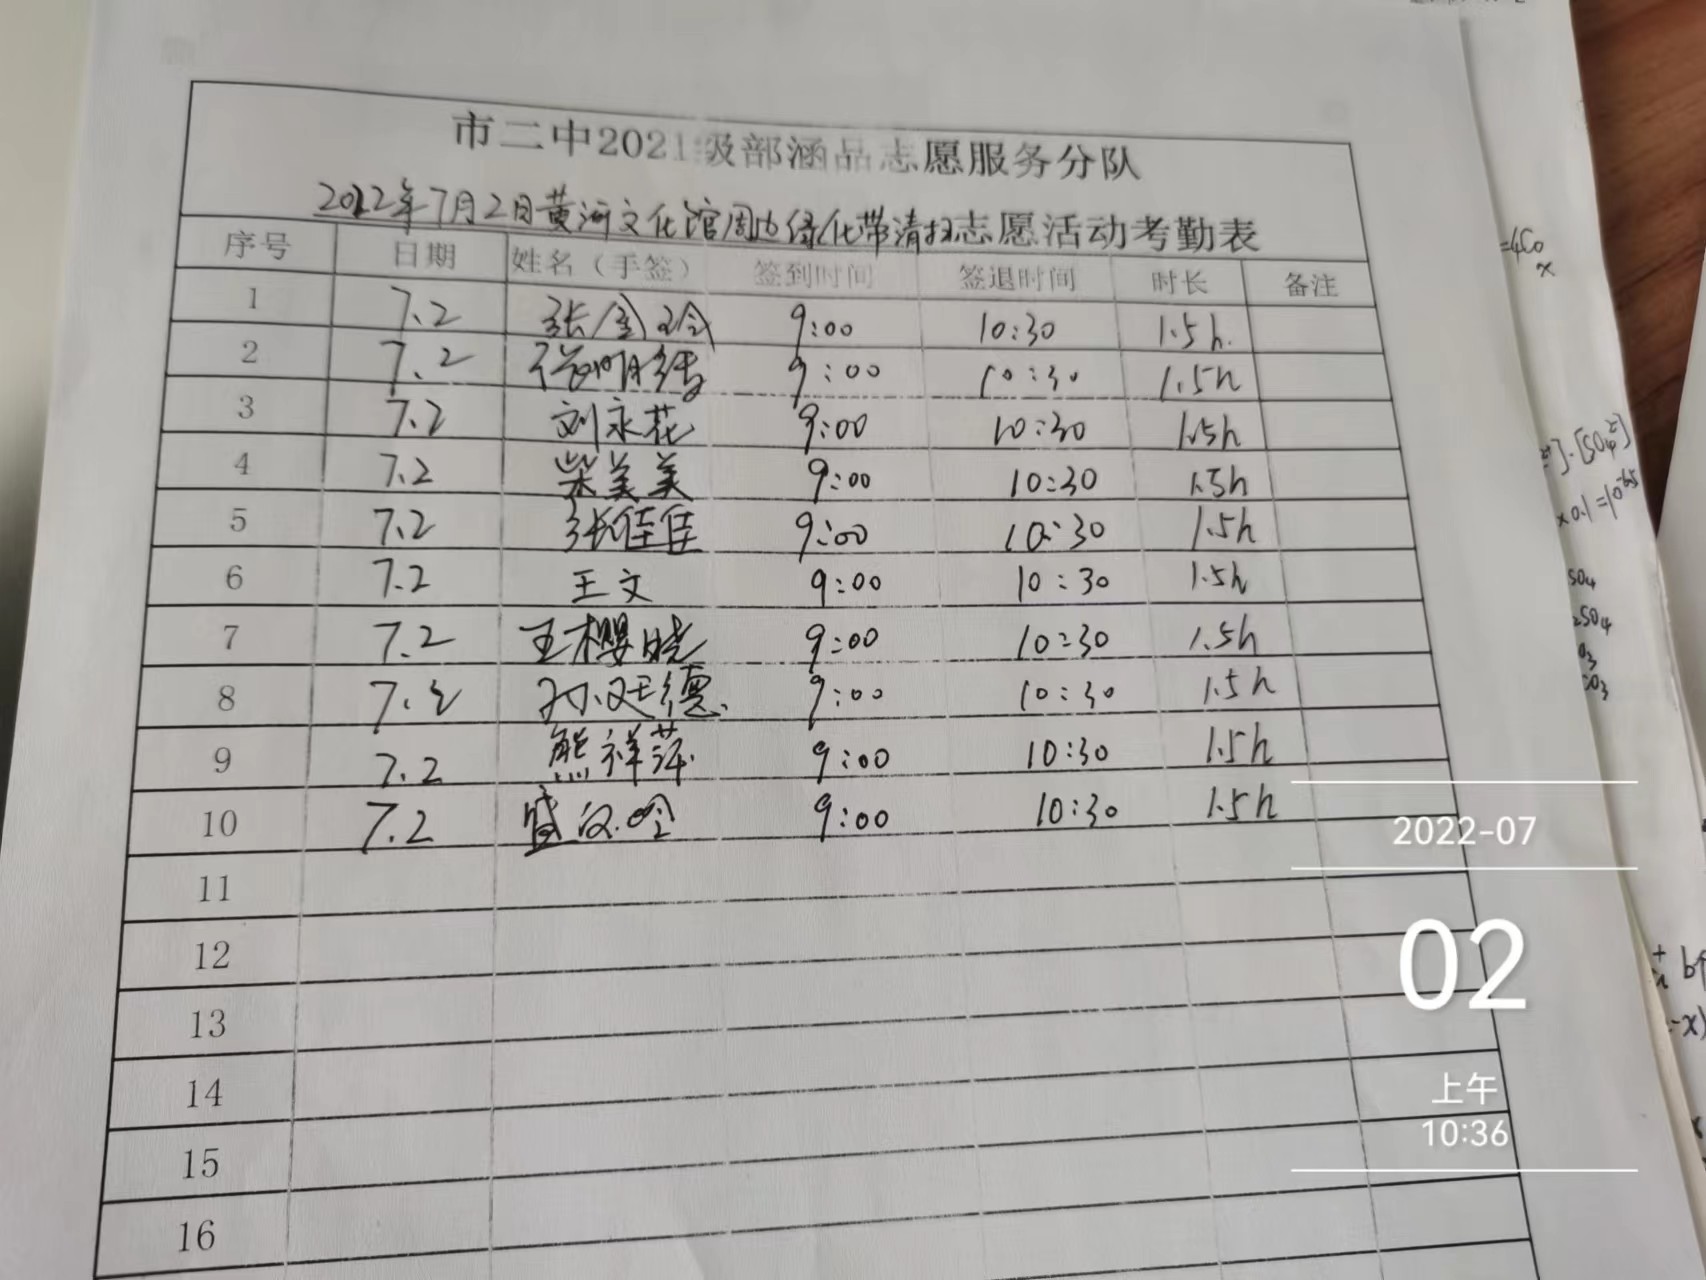 市二中2021级部涵品志愿服务分队
2022年7月2日黄河文化馆周边绿化带清扫志愿活动考勤表
序号 日期 姓名（手签） 签到时间 签退时间 时长 备注
1 7.2 张金玲 9:00 10:30 1.5h.
2 7.2 9:00 10:30 1.5h
3 7.2 刘永花 9:00 10:30 1.5h
4 7.2 柴美美 9:00 10:30 1.5h
5 7.2 张佳佳 9:00 10:30 1.5h
6 7.2 王文 9:00 10:30 1.5h
7 7.2 王樱晓 9:00 10:30 1.5h
8 7.2 孙廷德 9:00 10:30 1.5h
9 7.2 熊祥萍 9:00 10:30 1.5h
10 7.2 9:00 10:30 1.5h
11
12
13
14
15
16
2022-07
02
上午
10:36
=4CO
x
]·[SO₄²⁻]
x0.1=10
SO₄
SO₄
O₃
CO₃
-x)